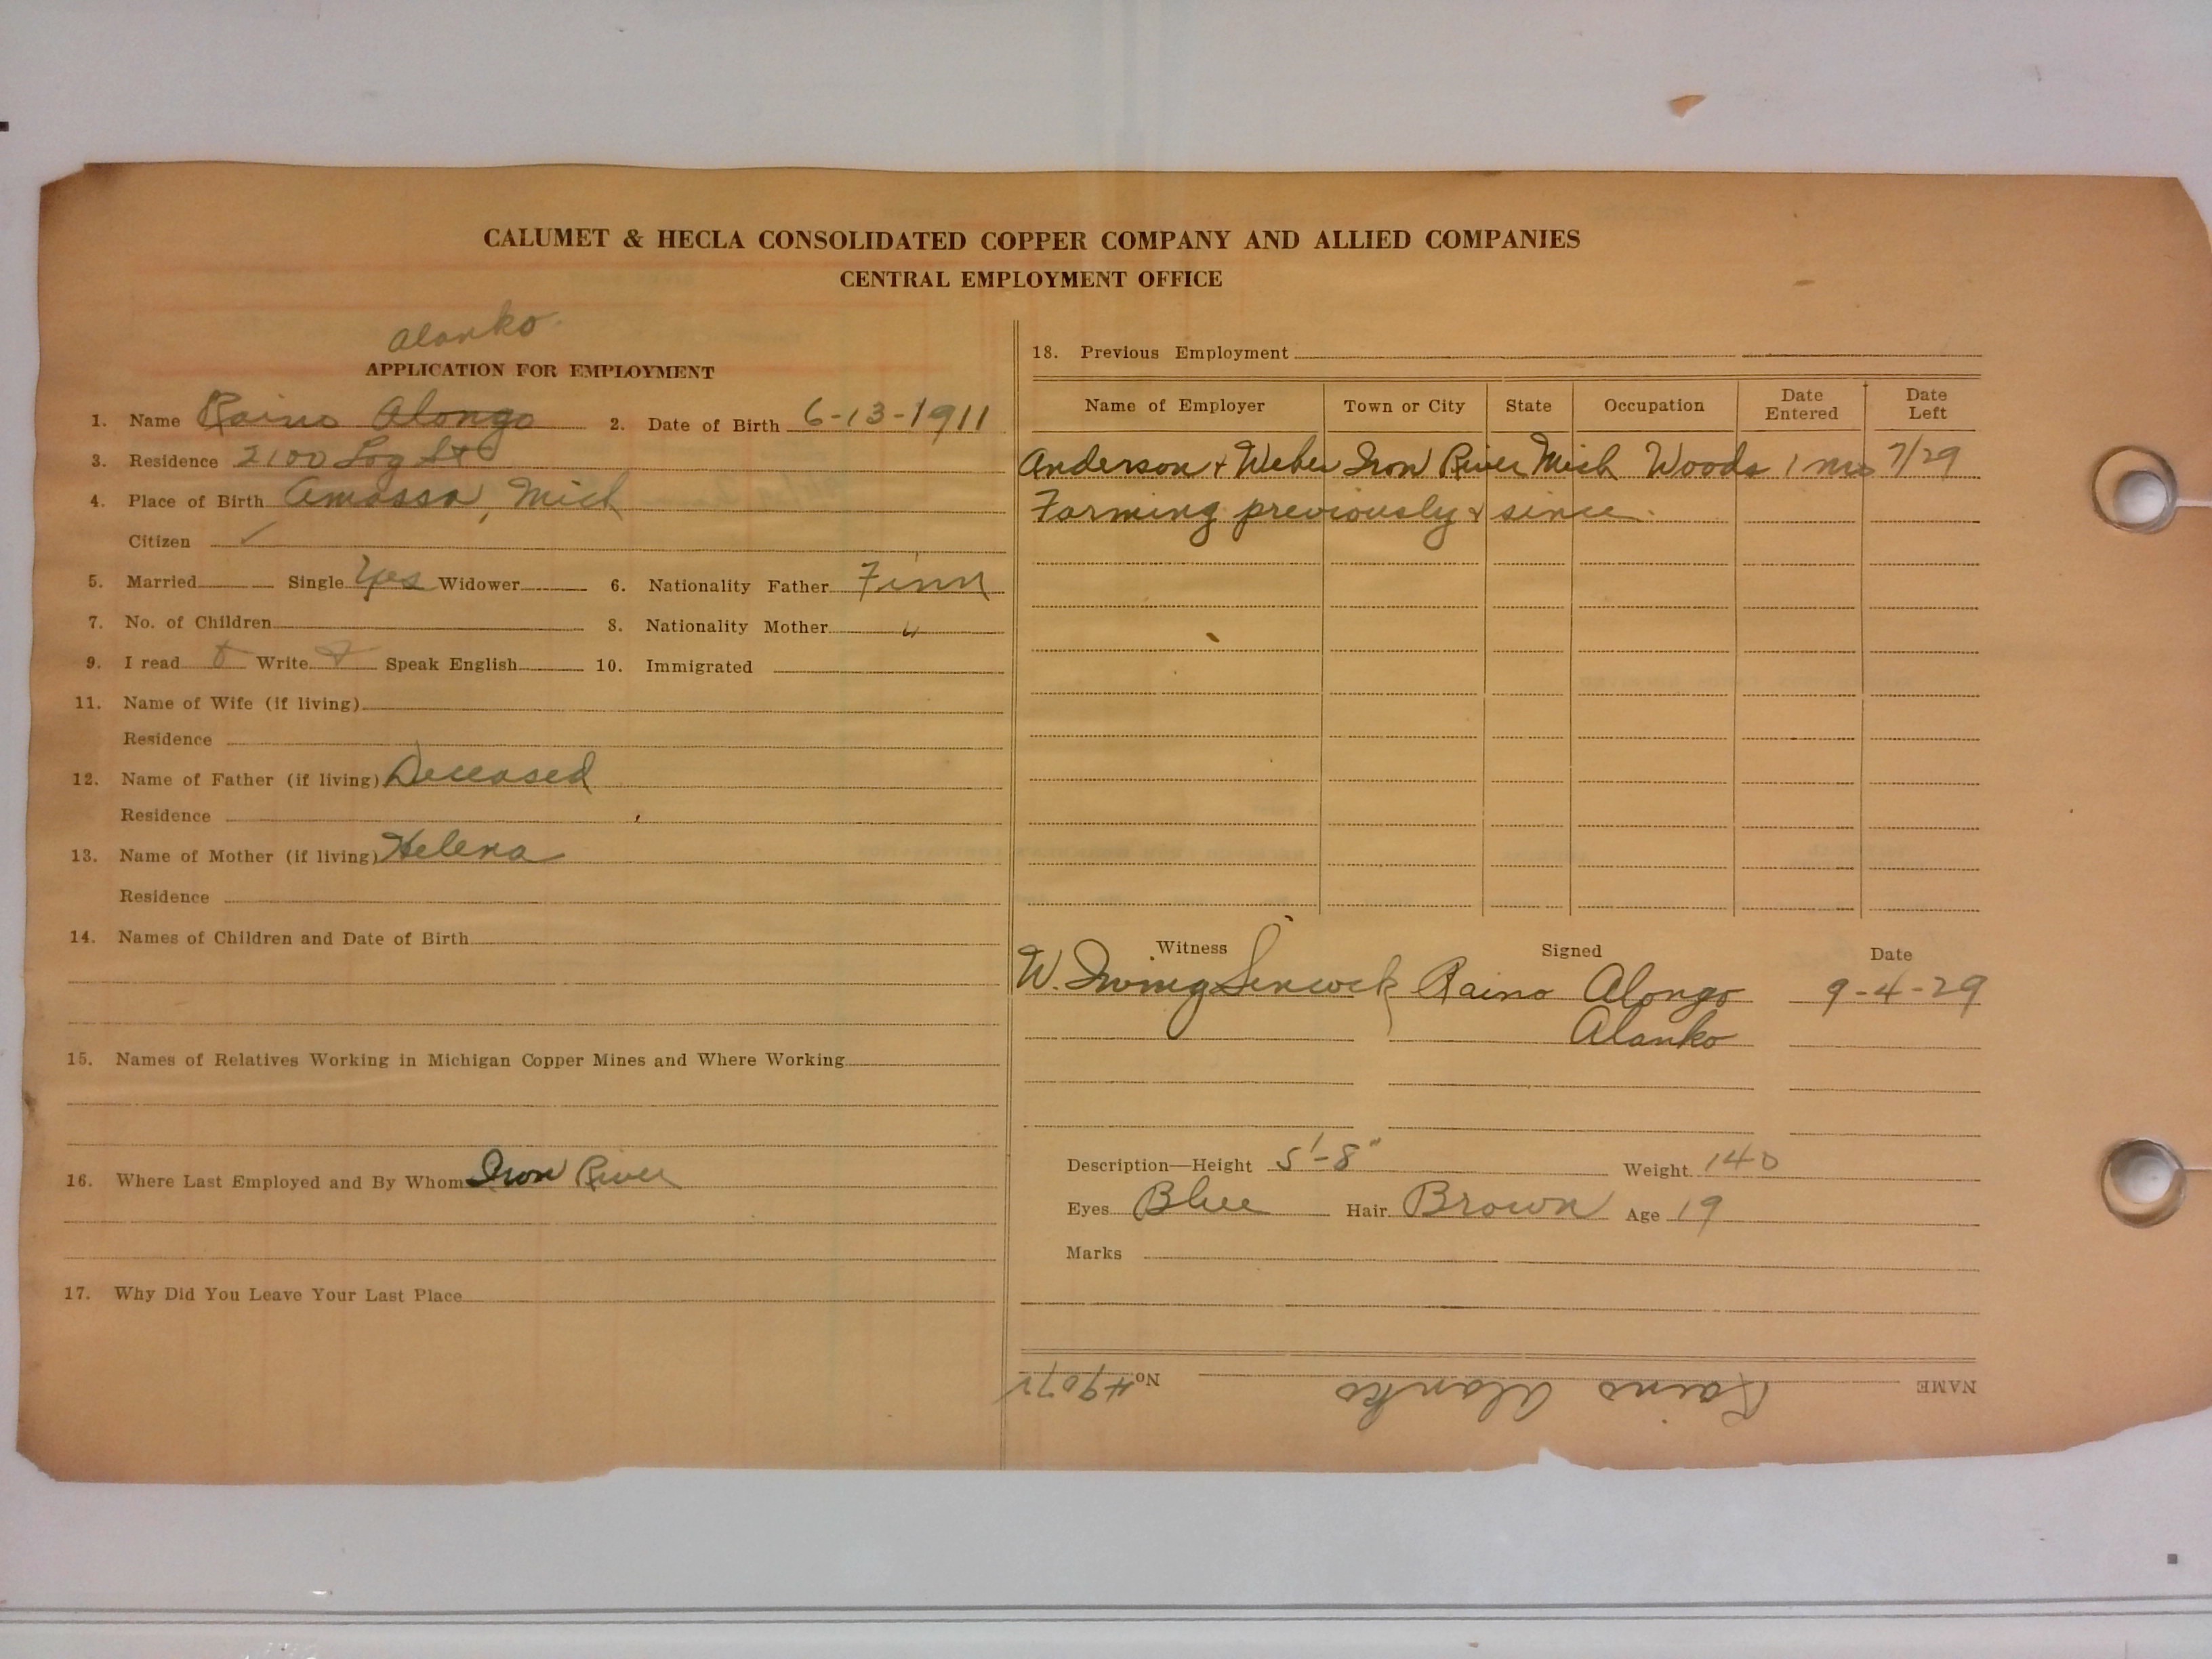 CALUMET & HECLA CONSOLIDATED COPPER COMPANY AND ALLIED COMPANIES
CENTRAL EMPLOYMENT OFFICE
Alanko
APPLICATION FOR EMPLOYMENT
1. Name Raino Alongo 2. Date of Birth 6-13-1911
3. Residence 2100 Log St
4. Place of Birth Amassa, Mich
Citizen ✓
5. Married Single Yes Widower 6. Nationality Father Finn
7. No. of Children 8. Nationality Mother "
9. I read Write Speak English 10. Immigrated
11. Name of Wife (if living)
Residence
12. Name of Father (if living) Deceased
Residence
13. Name of Mother (if living) Helena
Residence
14. Names of Children and Date of Birth
15. Names of Relatives Working in Michigan Copper Mines and Where Working
16. Where Last Employed and By Whom Iron River
17. Why Did You Leave Your Last Place
18. Previous Employment
Name of Employer Town or City State Occupation Date Entered Date Left
Anderson + Weber Iron River Mich Woods 1 mo 7/29
Farming previously & since.
Witness Signed Date
W. Irving Raino Alongo 9-4-29
Alanko
Description—Height 5'-8" Weight 140
Eyes Blue Hair Brown Age 19
Marks
NAME Raino Alanko No.